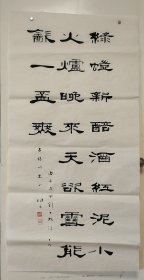 綠螘新醅酒紅泥小
火爐晚來天欲雪能
㱃一盃無